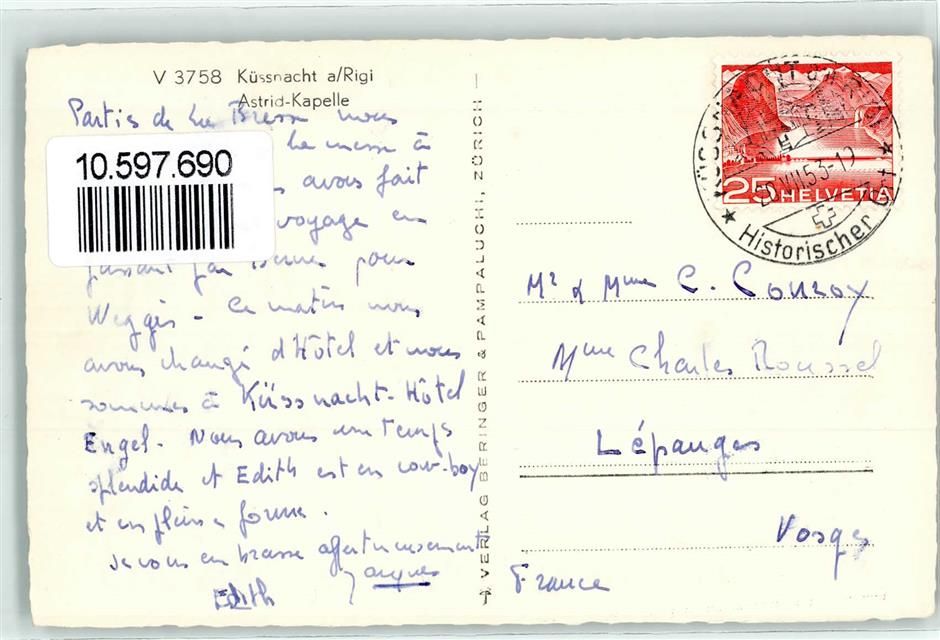 V 3758 Küssnacht a/Rigi
Astrid-Kapelle
Partis de La Bresse nous
la messe à
10.597.690
avons fait
voyage en
passant par Berne pour
Weggis - Ce matin nous
avons changé d'Hôtel et nous
sommes à Küssnacht-Hôtel
Engel. Nous avons un temps
splendide et Edith est en cow-boy
et en pleine forme.
Je vous embrasse affectueusement
Jacques
Edith
VERLAG BERINGER & PAMPALUCHI, ZÜRICH
25 HELVETIA
VII.53-19
Historischer Ort
Mr & Mme C. Conroy
Mme Charles Roussel
Lépanges
Vosges
France